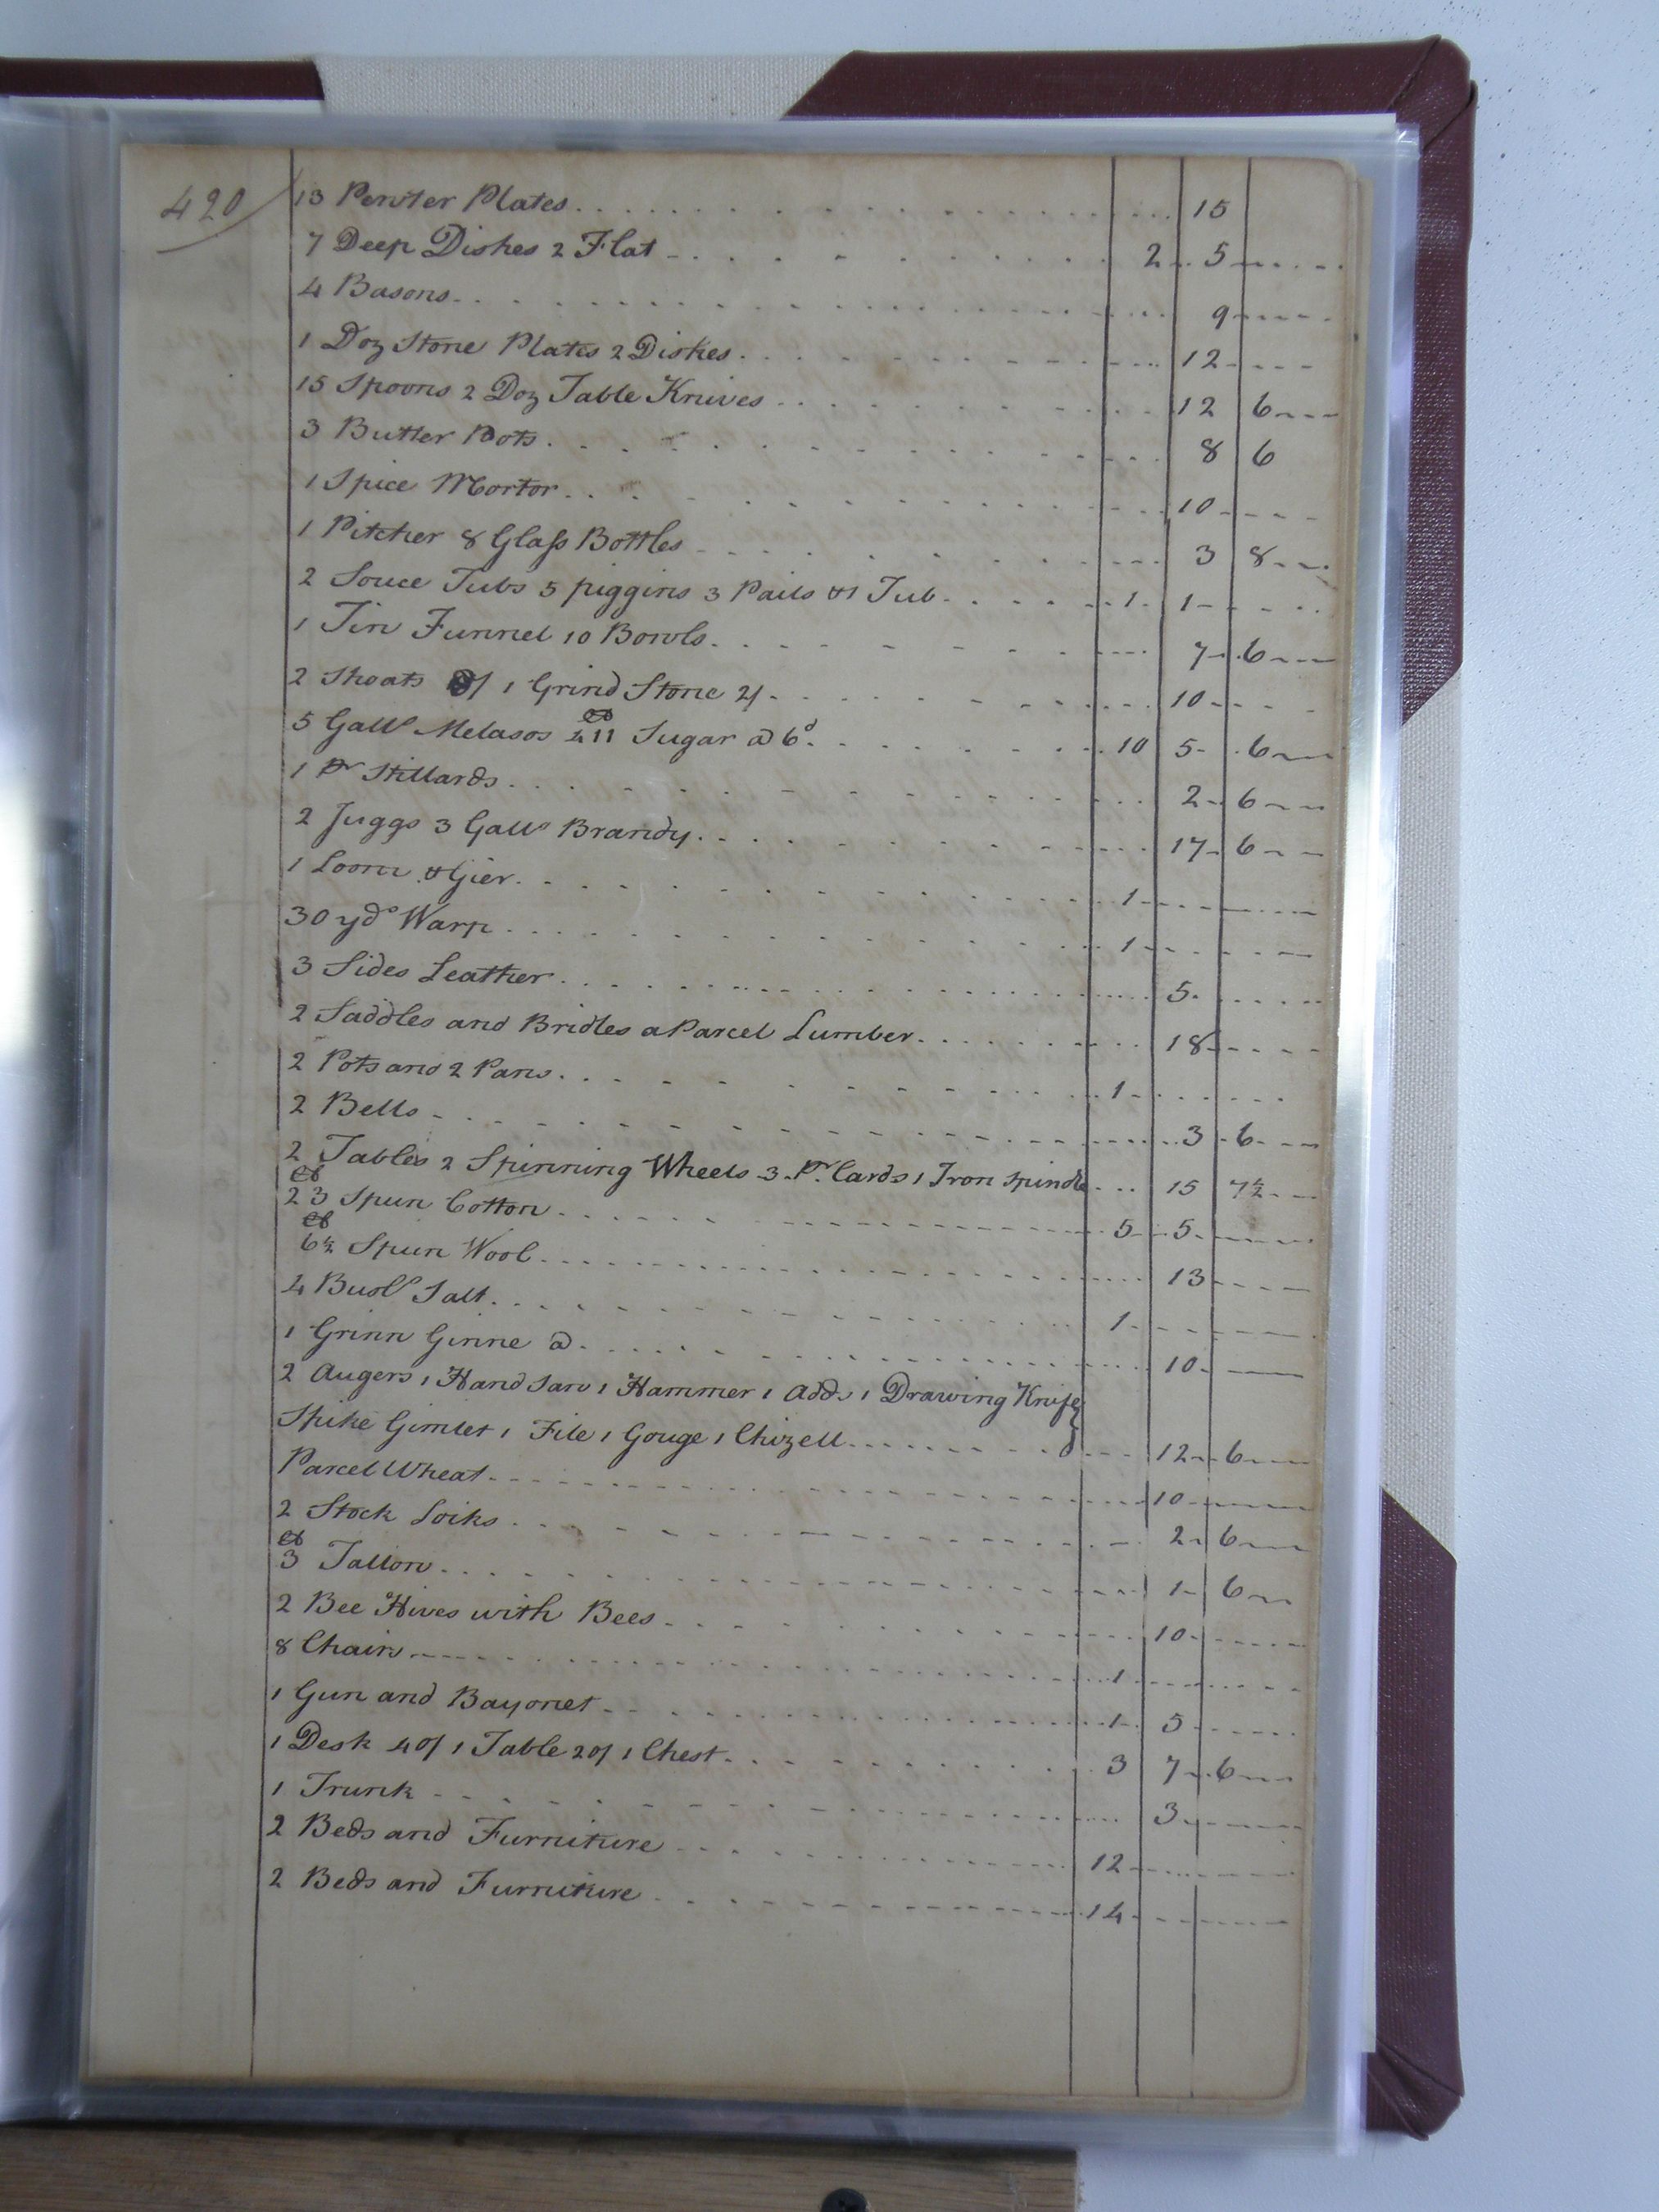 420
13 Pewter Plates 15
7 Deep Dishes 2 Flat 2 5
4 Basons 9
1 Doz Stone Plates 2 Dishes 12
15 Spoons 2 Doz Table Knives 12 6
3 Butter Pots 8 6
1 Spice Mortor 10
1 Pitcher 8 Glass Bottles 3 8
2 Souce Tubs 5 piggins 3 Pails & 1 Tub 1 1
1 Tin Funnel 10 Bowls 7 6
2 Shoats 8/ 1 Grind Stone 2/ 10
5 Galls Melasos 211 lb Sugar @ 6d 10 5 6
1 Pr Stillards 2 6
2 Juggs 3 Galls Brandy 17 6
1 Loom & Gier 1
30 yds Warp 1
3 Sides Leather 5
2 Saddles and Bridles a Parcel Lumber 18
2 Pots and 2 Pans 1
2 Bells 3 6
2 Tables 2 Spinning Wheels 3 Pr Cards 1 Iron Spindle 15 7½
23 lb Spun Cotton 5 5
6½ lb Spun Wool 13
4 Busls Salt 1
1 Grinn Ginne @ 10
2 Augers 1 Hand Saw 1 Hammer 1 Adds 1 Drawing Knife
Spike Gimlet 1 File 1 Gouge 1 Chizell 12 6
Parcel Wheat 10
2 Stock Locks 2 6
3 lb Tallow 1 6
2 Bee Hives with Bees 10
8 Chairs 1
1 Gun and Bayonet 1 5
1 Desk 40/ 1 Table 20/ 1 Chest 3 7 6
1 Trunk 3
2 Beds and Furniture 12
2 Beds and Furniture 14